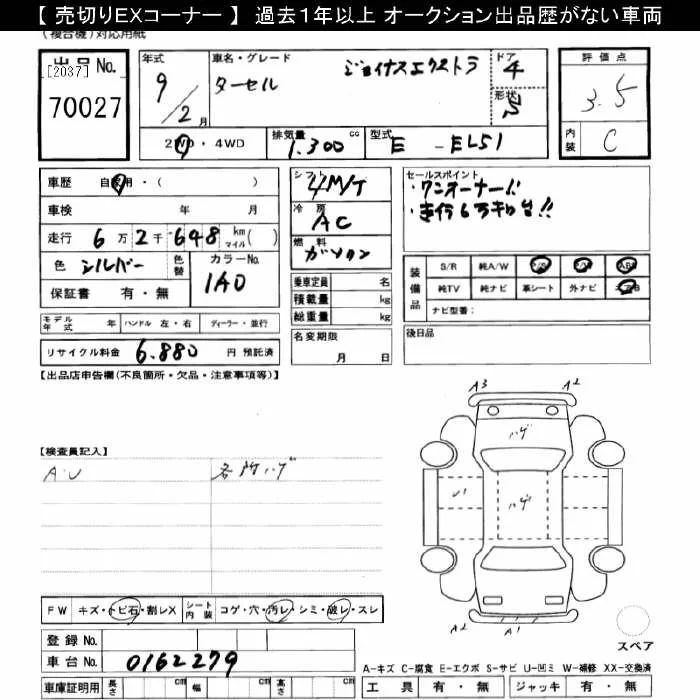 【 売切りEXコーナー 】 過去1年以上 オークション出品歴がない車両
(複合機)対応用紙
出品 No.
[2037]
70027
年式
9/2月
車名・グレード
ターセル ジョイナスエクストラ
ドア
4
形状
S
2WD・4WD
排気量
1.300 cc
型式
E - EL51
評価点
3.5
内装
C
車歴 自家用・( )
車検 年 月
走行 6万2千648 km マイル( )
色 シルバー
色替
カラーNo.
1A0
保証書 有・無
シフト
4M/T
冷房
AC
燃料
ガソリン
乗車定員 名
積載量 kg
総重量 kg
セールスポイント
・ワンオーナー!!
・走行6万キロ台!!
装備品
S/R 純A/W P/S P/W ABS
純TV 純ナビ 革シート 外ナビ エアB
ナビ型番:
モデル年式 年 ハンドル 左・右 ディーラー・並行
リサイクル料金 6.880 円 預託済
名変期限
月 日
後日品
【出品店申告欄(不良箇所・欠品・注意事項等)】
【検査員記入】
A・U
各所ハゲ
A3
A2
ハゲ
U1
ハゲ
A2
A1
スペア
FW キズ・トビ石・割レX
シート内装 コゲ・穴・汚レ・シミ・破レ・スレ
登録 No.
車台 No. 0162279
車庫証明用 長さ cm 幅 cm 高さ cm
A-キズ C-腐食 E-エクボ S-サビ U-凹ミ W-補修 XX-交換済
工具 有・無 ジャッキ 有・無